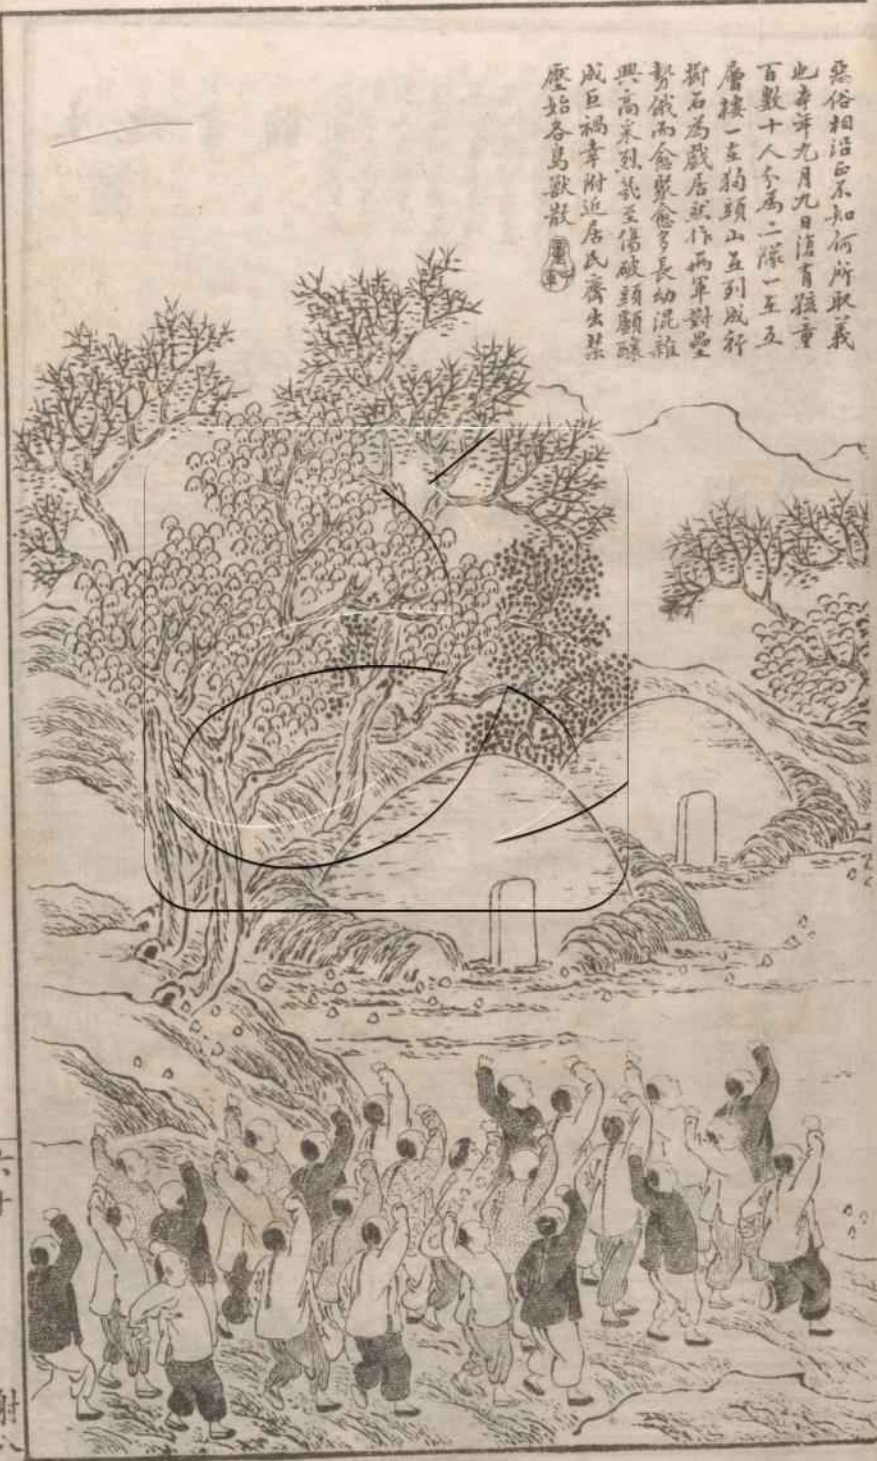 惡俗相沿正不知何所取義
也本年九月九日復有孩童
百數十人分爲二隊一至五
層樓一在狗頭山互列成行
擲石爲戲居然作兩軍對壘
勢俄而愈聚愈多長幼混雜
興高采烈幾至傷破頭顱釀
成巨禍幸附近居民齊出禁
壓始各鳥獸散
六十